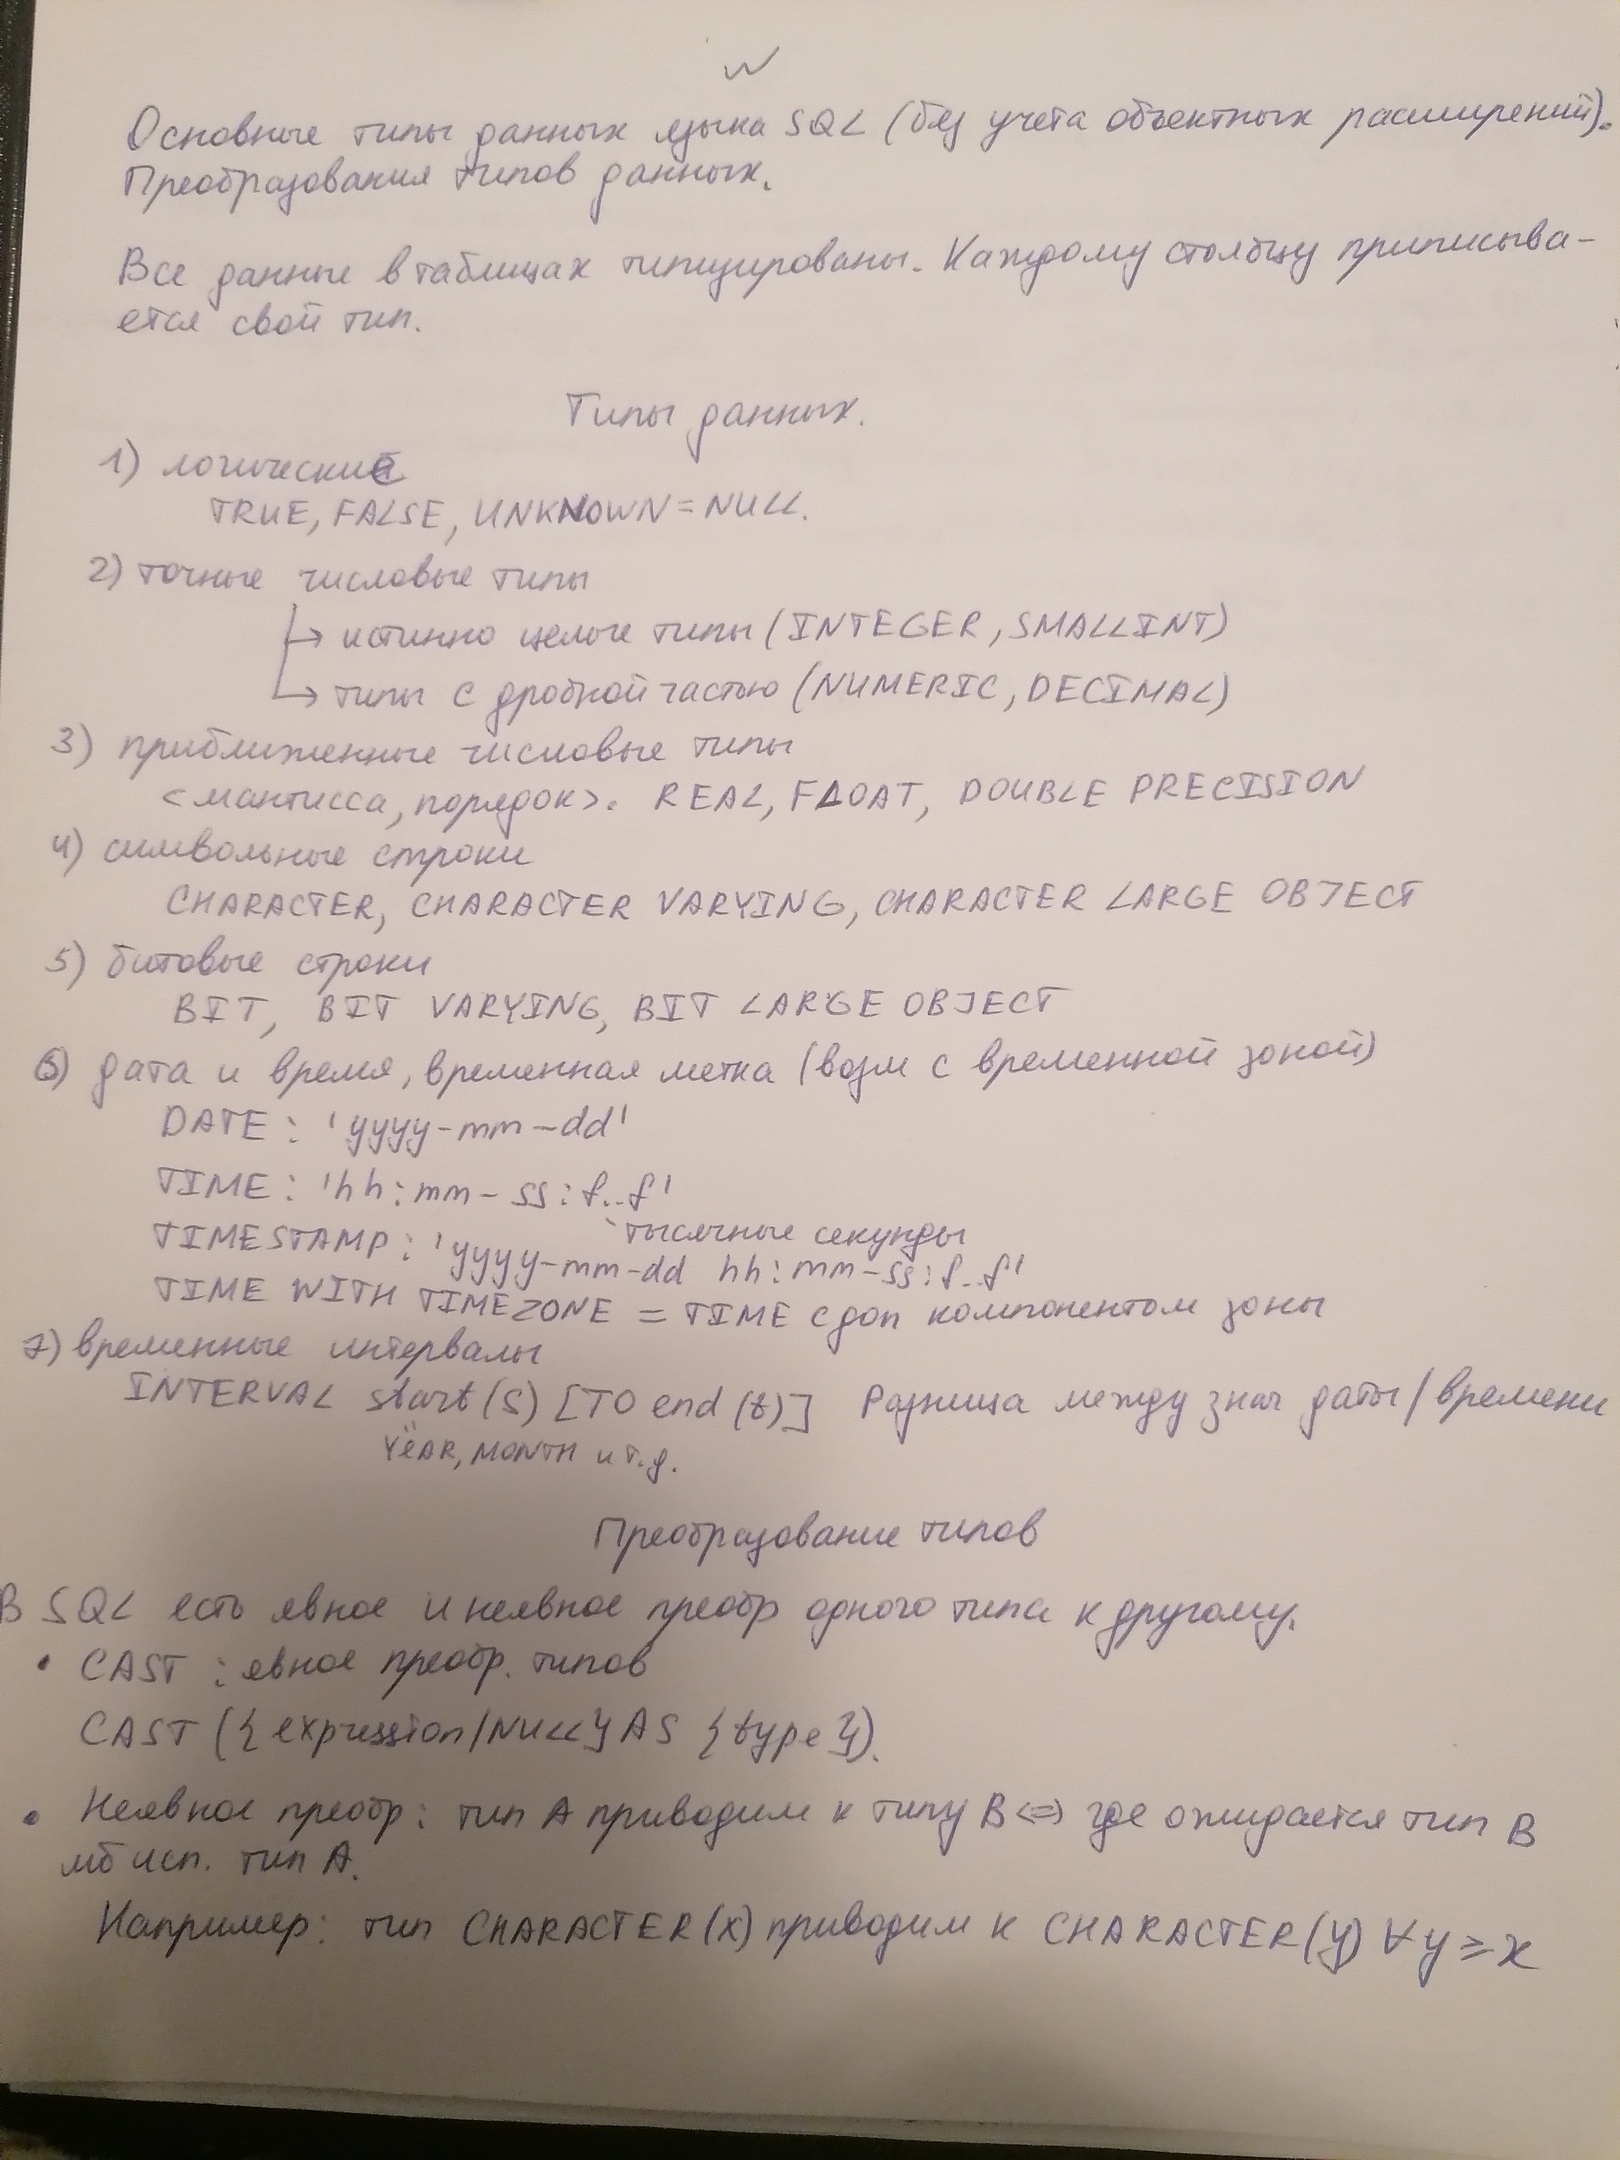 Основные типы данных языка SQL (без учета объектных расширений).
Преобразования типов данных.
Все данные в таблицах типизированы. Каждому столбцу приписыва-
ется свой тип.
Типы данных.
1) логические
TRUE, FALSE, UNKNOWN = NULL.
2) точные числовые типы
↳ истинно целые типы (INTEGER, SMALLINT)
↳ типы с дробной частью (NUMERIC, DECIMAL)
3) приближенные числовые типы
<мантисса, порядок>. REAL, FLOAT, DOUBLE PRECISION
4) символьные строки
CHARACTER, CHARACTER VARYING, CHARACTER LARGE OBJECT
5) битовые строки
BIT, BIT VARYING, BIT LARGE OBJECT
6) дата и время, временная метка (возм с временной зоной)
DATE: 'yyyy-mm-dd'
TIME: 'hh:mm-ss:f..f'
тысячные секунды
TIMESTAMP: 'yyyy-mm-dd hh:mm-ss:f..f'
TIME WITH TIMEZONE = TIME с доп компонентом зоны
7) временные интервалы
INTERVAL start(s) [TO end(t)] Разница между знач даты/времени
YEAR, MONTH и т.д.
Преобразование типов
В SQL есть явное и неявное преобр одного типа к другому.
• CAST: явное преобр. типов
CAST ({expression/NULL} AS {type}).
• Неявное преобр: тип A приводим к типу B <=> где ожидается тип B
мб исп. тип A.
Например: тип CHARACTER(x) приводим к CHARACTER(y) ∀y ≥ x